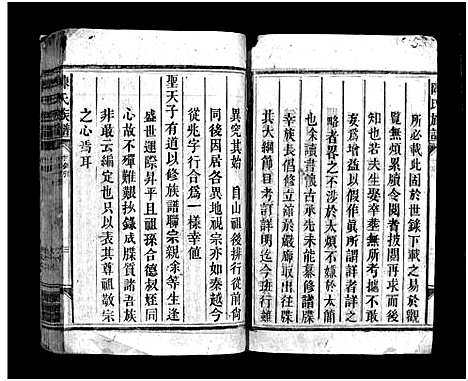 陳氏族譜
所必載此固於世錄下載之易於觀
覽無煩累牘令閱者披閱再而後
知也若夫生娶卒葬無所考據不
妨奚爲增益以假作眞所謂詳者詳之
略者畧之不涉於太煩不嫌於太簡
也余讀書懷古承先未能纂修諸牒
幸族長倡修立館於嚴廊取出往牒
其大綱節目考訂詳明迄今班行雖
異究其始 自山祖後排行從前尙
同後因居各異地視宗亦如秦越今
從兆字行合爲一樣幸値
聖天子有道以修族譜聯宗親余等生逢
盛世運際昇平且祖孫合德叔姪同
心故不殫難艱抄錄成牒質諸吾族
非敢云編定也只以表其尊祖敬宗
之心焉耳
陳氏族譜